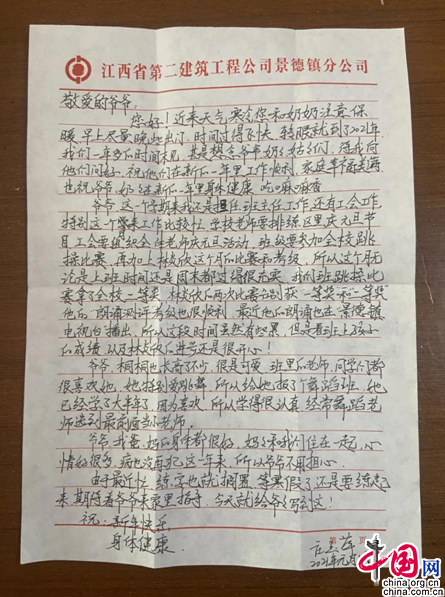 江西省第二建筑工程公司景德镇分公司
敬爱的爷爷:
您好!近来天气寒冷您和奶奶注意保
暖,早上尽量晚些出门。时间过得飞快,转眼就到了2021年,
我们一年多的时间未见,甚是想念爷爷奶奶
他们问好,祝他们在新的一年里工作顺利,家庭幸福美满
也祝爷爷奶奶在新的一年里身体健康,吃嘛嘛香
爷爷,这个学期我还是担任班主任工作,还有工会工作
特别这个学期末工作比较忙,学校老师要排练区里庆元旦节
目,工会要组织全体老师庆元旦活动,班级要参加全校跳
绳比赛,再加上林这个月的比赛和考级,所以这个月无
论是上班时间还是周末都过得很充实,我们班跳绳比
赛拿了全校二等奖,林两次比赛分别获一等奖和二等奖
他的朗诵测评考级也很顺利,最近他的朗诵也在景德镇
电视台播出,所以这段时间虽然有些累,但是看到班上孩子
的成绩,以及林的进步还是很开心!
爷爷,桐桐也长高不少,很是可爱,班里的老师,同学们都
很喜欢她,她特别爱跳舞,所以给她报了舞蹈班,她
已经学了大半年了,因为喜欢,所以学得很认真,经常舞蹈老
师选到最前面当小老师。
爷爷,我爸妈的身体都很好,妈妈和我们住在一起,心
情好很多,病也没再犯,这一年来,所以爷爷不用担心。
由于最近忙,练字也就搁置,等寒假了还是要练起
来,期待着爷爷来家里指导,今天就给爷爷写到这!
祝:新年快乐
身体健康
2021年元月
中国网
china.com.cn
www.china.org.cn